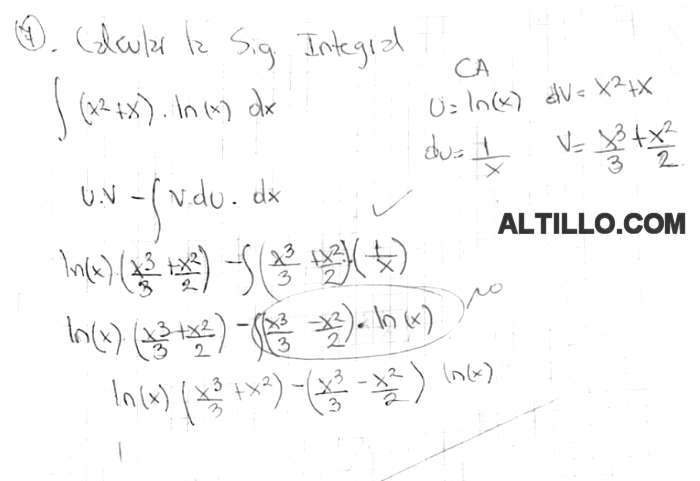 ④. Calcular la Sig. Integral
∫ (x²+x) · ln(x) dx
CA
U = ln(x) dV = x²+x
du = 1/x V = x³/3 + x²/2
U.V - ∫ V.du. dx
ALTILLO.COM
ln(x) · (x³/3 + x²/2) - ∫ (x³/3 + x²/2) · (1/x)
ln(x) · (x³/3 + x²/2) - ∫ (x³/3 - x²/2) · ln(x) no
ln(x) (x³/3 + x²) - (x³/3 - x²/2) ln(x)